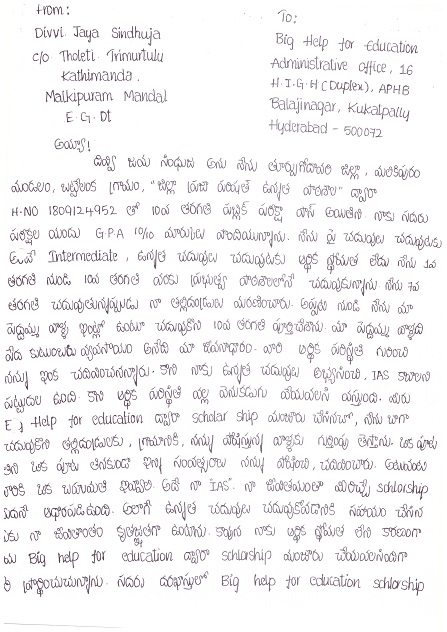 From:
Divvi. Jaya Sindhuja
c/o Tholeti Trimurtulu
Kathimanda.
Malkipuram Mandal
E.G.Dt
To:
Big Help for Education
Administrative office, 16
H.I.G.H (Duplex), APHB
Balajinagar, Kukatpally
Hyderabad - 500072
అయ్యా!
దివ్వి జయ సింధుజ అను నేను తూర్పుగోదావరి జిల్లా, మలికిపురం
మండలం, గ్రామం, "జిల్లా ప్రజా పరిషత్ ఉన్నత పాఠశాల" ద్వారా
H.NO 1809124952 తో 10వ తరగతి పబ్లిక్ పరీక్షా పాస్ అయితిని నాకు సదరు
పరీక్షల యందు GPA మార్కులు పొందియున్నాను. నేను పై చదువులు చదువుటకు
Intermediate, ఉన్నత చదువులు చదువుటకు ఆర్థిక స్తోమత లేదు నేను 1వ
తరగతి నుండి 10వ తరగతి వరకు ప్రభుత్వ పాఠశాలలోనే చదువుకున్నాను నేను 7వ
తరగతి చదువుతున్నప్పుడు నా తల్లిదండ్రులు మరణించారు. అప్పటి నుండి నేను మా
పెద్దమ్మ వాళ్ళ ఇంట్లో ఉంటూ చదువుకొని 10వ తరగతి పూర్తిచేశాను. మా పెద్దమ్మ వాళ్ళది
పేద కుటుంబం వ్యవసాయం అనేది మా జీవనాధారం. వారి ఆర్థిక పరిస్థితి గురించి
నన్ను ఇంక చదివించనన్నారు. కానీ నాకు ఉన్నత చదువులు అభ్యసించి, IAS కావాలని
పట్టుదల ఉంది. కానీ ఆర్థిక పరిస్థితి వల్ల వెనుకడుగు వేయవలసి వస్తుంది.
Help for education ద్వారా scholar ship మంజూరు చేసినచో, నేను బాగా
చదువుకొని తల్లిదండ్రులకు, గ్రామానికి, నన్ను పోషిస్తున్న వాళ్ళకు గుర్తింపు తెస్తాను. ఒక పూట
తిని ఒక పూట తినకుండా ఇన్ని సంవత్సరాలు నన్ను పోషించి, చదివించారు.
వారికి ఒక బహుమతి ఇవ్వాలి అదే నా IAS". నా జీవితమంతా మీరిచ్చే schlorship
మీదనే ఆధారపడి ఉంది. ఇలాగే ఉన్నత చదువులు చదువుకోవడానికి సహాయం చేసిన
నా జీవితాంతం కృతజ్ఞతగా ఉంటాను. కావున నాకు ఆర్థిక స్తోమత లేని కారణంగా
Big help for education ద్వారా schlorship మంజూరు చేయవలసిందిగా
ప్రార్థించుచున్నాను. సదరు దరఖాస్తులో Big help for education schlorship